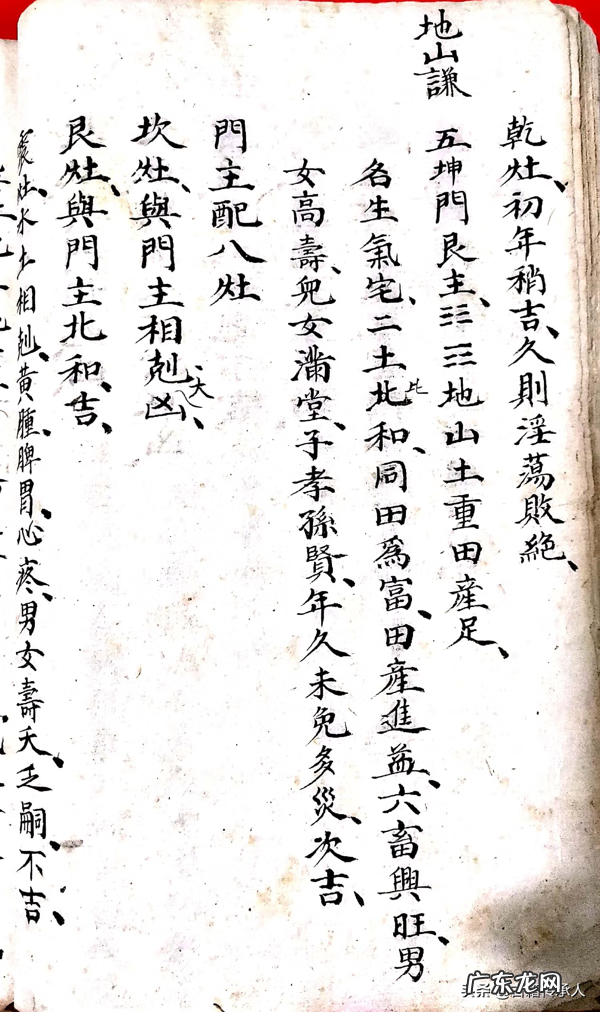 地山謙
乾灶、初年稍吉、久則淫蕩敗絶、
五坤門艮主、☷☶地山土重田産足、
名生氣宅、二土北比和、同田爲富、田産進益、六畜興旺、男
女高壽、兒女滿堂、子孝孫賢、年久未免多災、次吉、
門主配八灶
坎灶、與門主相剋大凶、
艮灶、與門主北和、吉、
灶水土相剋、黃腫脾胃心疼、男女壽夭、乏嗣、不吉、
广东龙网